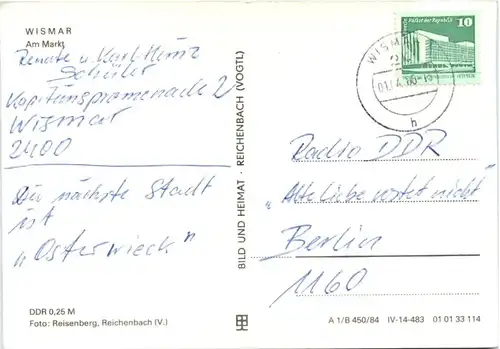 WISMAR
Am Markt
Renate u. Karl-Heinz
Schüler
Kapitänspromenade 2
Wismar
2400
Die nächste Stadt
ist
"Osterwieck"
DDR 0,25 M
Foto: Reisenberg, Reichenbach (V.)
BILD UND HEIMAT · REICHENBACH (VOGTL)
Palast der Republik
10
WISMAR
h
Radio DDR
"Alte Liebe rostet nicht"
Berlin
1160
A 1/B 450/84 IV-14-483 01 01 33 114